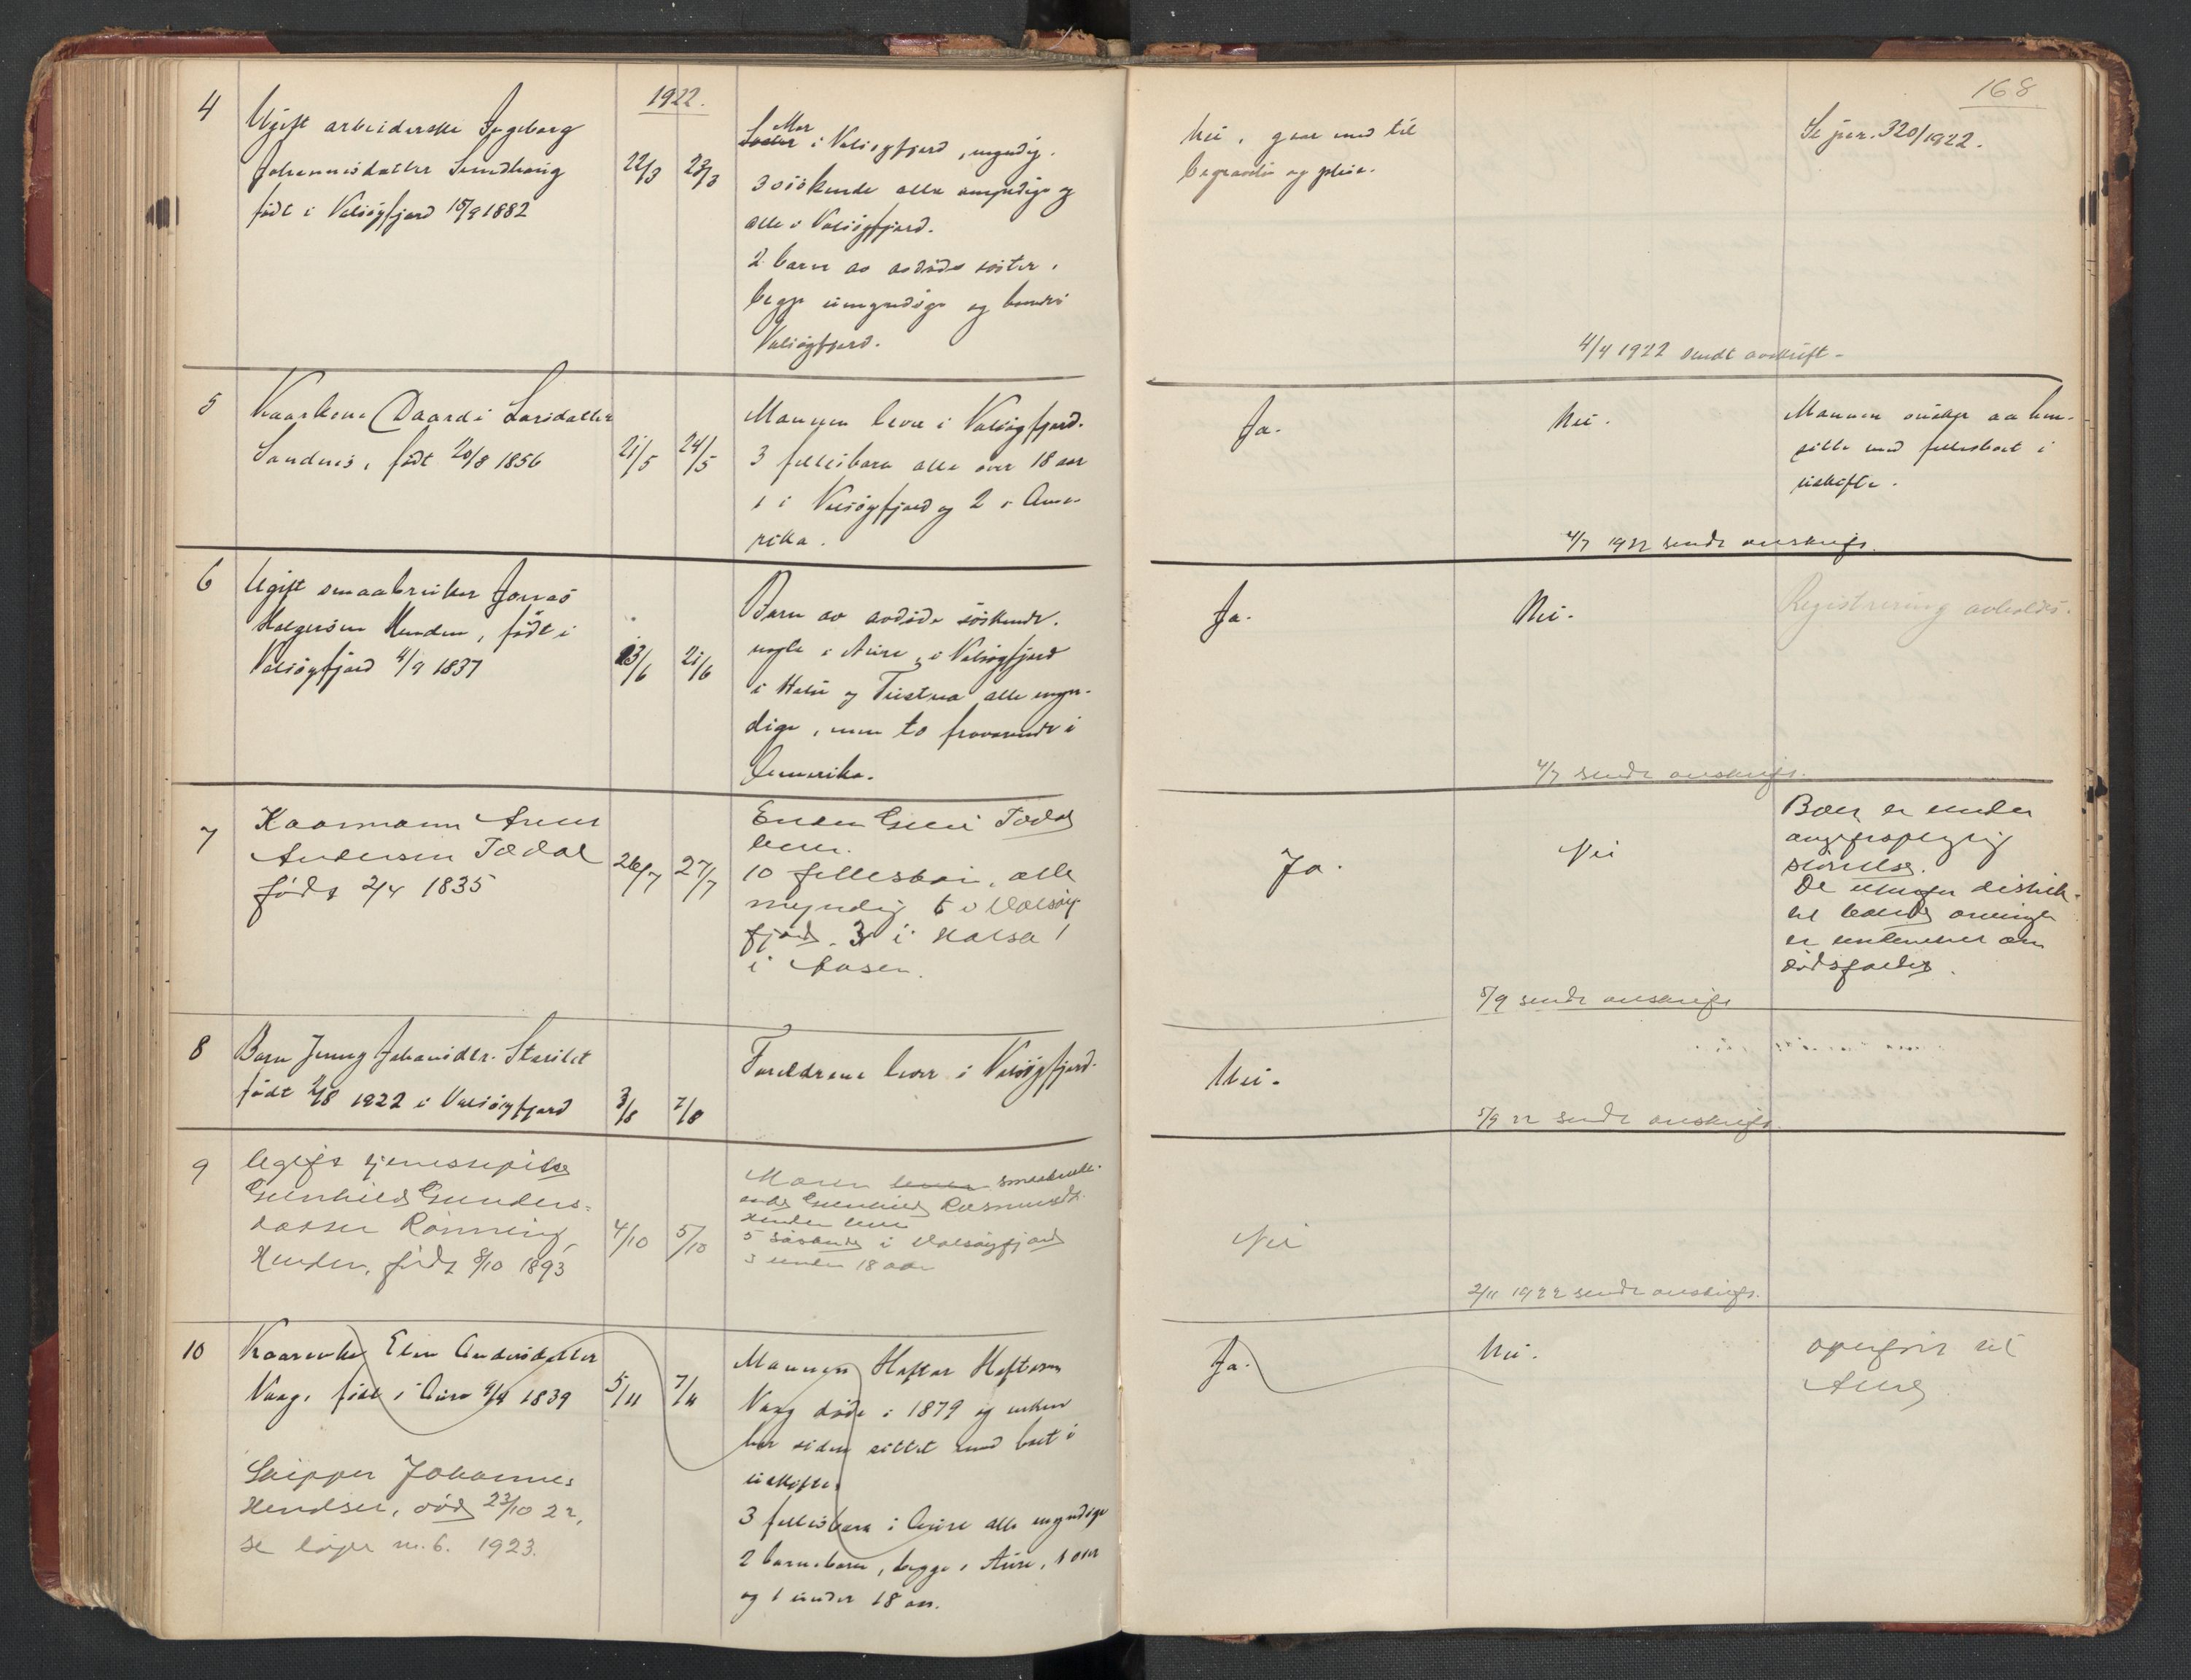 168
1922.
4
Ugift arbeiderske Ingeborg
Johannesdatter
født i Valsøyfjord 15/9 1882
22/3
23/3
Mor
Søster i Valsøyfjord, myndig.
3 søskende alle myndige og
alle i Valsøyfjord.
2 barn av avdøde søster,
begge umyndige og
Valsøyfjord.
Nei, gaar med til
begravelse og pleie.
Se jnr. 320/1922.
4/4 1922 sendt avskrift.
5
Kaarkone Baardi Larsdatter
Sandnes, født 20/8 1856
21/5
24/5
Mannen lever i Valsøyfjord.
3 fellesbarn alle over 18 aar
1 i Valsøyfjord og 2 i Ame-
rika.
Ja.
Nei.
Mannen ønsker aa hen-
sitte med fellesboet i
uskifte.
4/7 1922 sendt avskrift.
6
Ugift smaabruker Jonas
Holgersen Henden, født i
Valsøyfjord 4/9 1837
13/6
21/6
Barn av avdøde søskende.
nogle i Aure, i Valsøyfjord
i Halsa og Tustna alle myn-
dige, men to fraværende i
Amerika.
Ja.
Nei.
Registrering avholdes.
4/7 sendt avskrift.
7
Kaarmann Arne
Andersen Tødal
født 2/4 1835
26/7
27/7
Enken Guri Tødal
lever.
10 fellesbarn, alle
myndig 6 i Valsøy-
fjord. 3 i Halsa 1
i Aasen.
Ja.
Nei
Boet er under
størrelse.
De
er underrettet om
dødsfallet.
5/9 sendt avskrift
8
Barn Jenny Johansdtr.
født 2/8 1922 i Valsøyfjord
3/8
7/8
Foreldrene lever i Valsøyfjord.
Nei.
5/9 22 sendt avskrift.
9
Ugift tjenestepike
Gunhild Gunders-
datter Rønning,
Henden, født 8/10 1893
4/10
5/10
Moren lever
Gunhild Rasmusdtr.
Henden lever
5 søskende i Valsøyfjord
3 under 18 aar
Nei
2/11 1922 sendt avskrift.
10
Kaarenke Elen Andersdatter
Vaag, født i Aure 9/4 1839
5/11
7/11
Mannen Haftor Haftorsen
Vaag døde i 1879 og enken
har siden sittet med boet i
uskifte.
3 fellesbarn i Aure alle myndige
2 barnebarn, begge i Aure, 1 over
og 1 under 18 aar.
Ja.
Nei.
overført til
Aure
Skipper Johannes
Hendset, død 23/10 22,
se løper nr. 6. 1923.